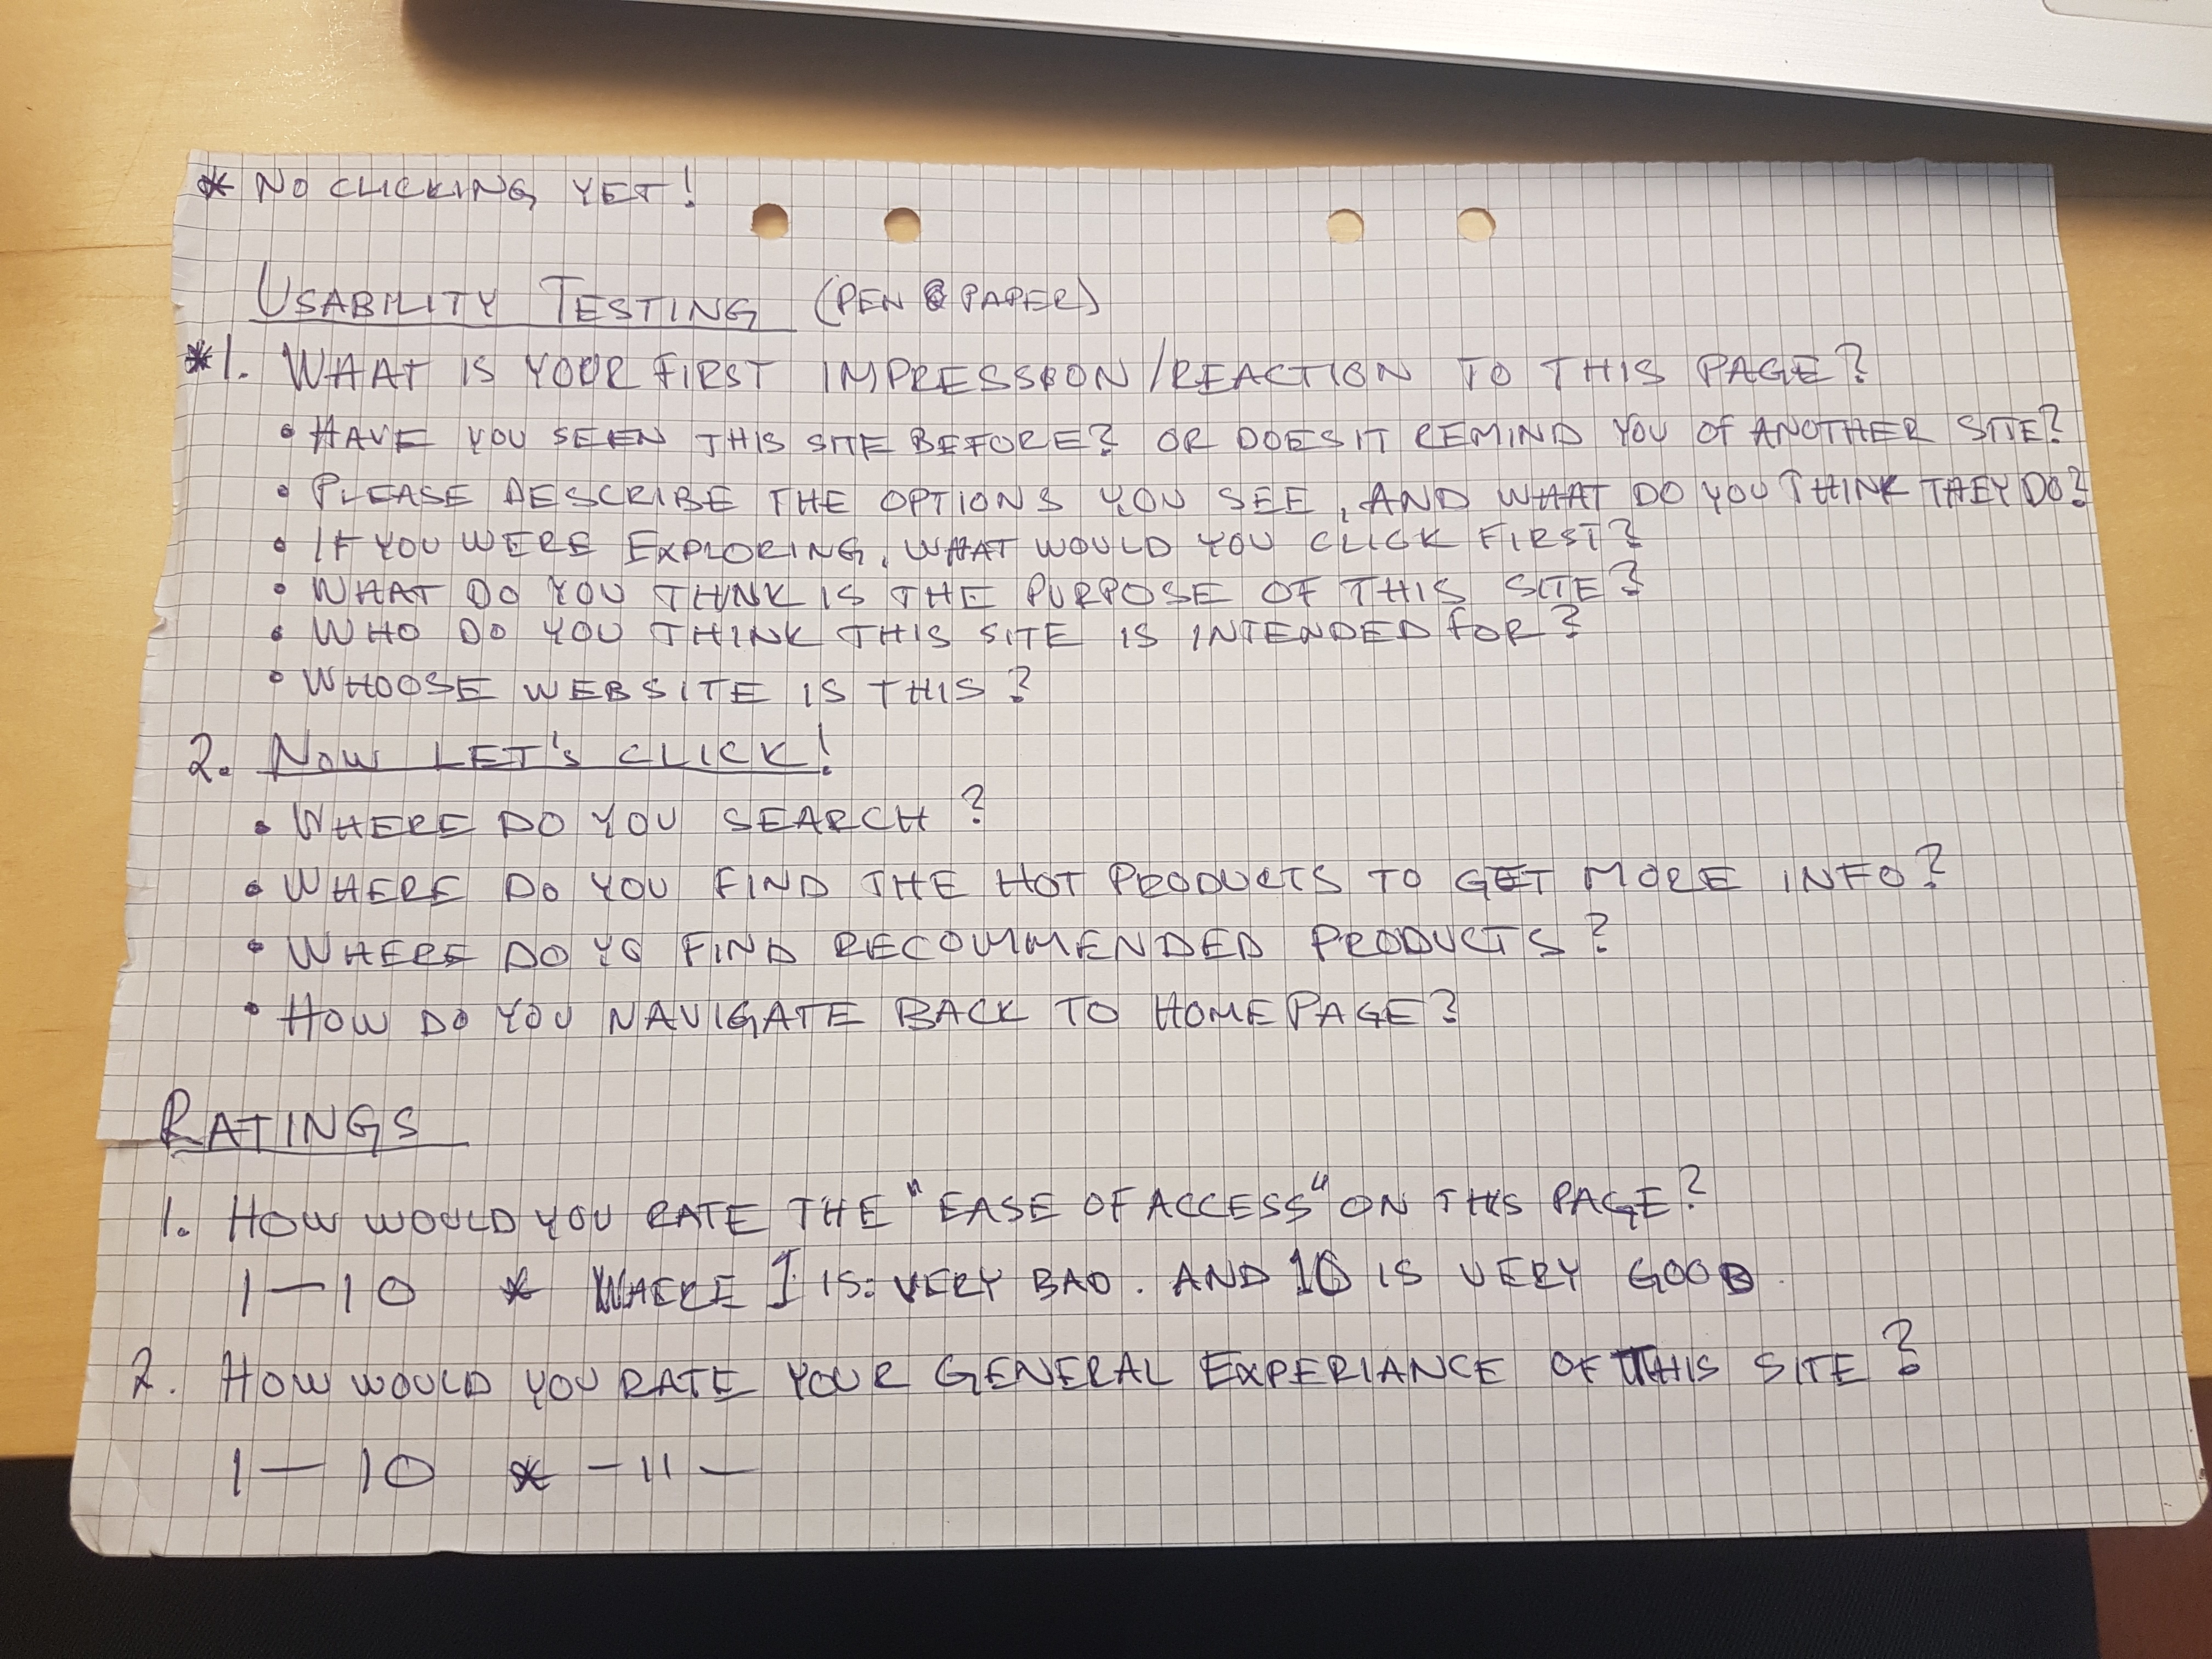 * NO CLICKING YET!
USABILITY TESTING (PEN & PAPER)
*1. WHAT IS YOUR FIRST IMPRESSION/REACTION TO THIS PAGE?
• HAVE YOU SEEN THIS SITE BEFORE? OR DOES IT REMIND YOU OF ANOTHER SITE?
• PLEASE DESCRIBE THE OPTIONS YOU SEE, AND WHAT DO YOU THINK THEY DO?
• IF YOU WERE EXPLORING, WHAT WOULD YOU CLICK FIRST?
• WHAT DO YOU THINK IS THE PURPOSE OF THIS SITE?
• WHO DO YOU THINK THIS SITE IS INTENDED FOR?
• WHOOSE WEBSITE IS THIS?
2. NOW LET'S CLICK!
• WHERE DO YOU SEARCH?
• WHERE DO YOU FIND THE HOT PRODUCTS TO GET MORE INFO?
• WHERE DO YO FIND RECOMMENDED PRODUCTS?
• HOW DO YOU NAVIGATE BACK TO HOMEPAGE?
RATINGS
1. HOW WOULD YOU RATE THE "EASE OF ACCESS" ON THIS PAGE?
1—10 * WHERE 1 IS: VERY BAD. AND 10 IS VERY GOOD.
2. HOW WOULD YOU RATE YOUR GENERAL EXPERIANCE OF THIS SITE?
1—10 * —11—